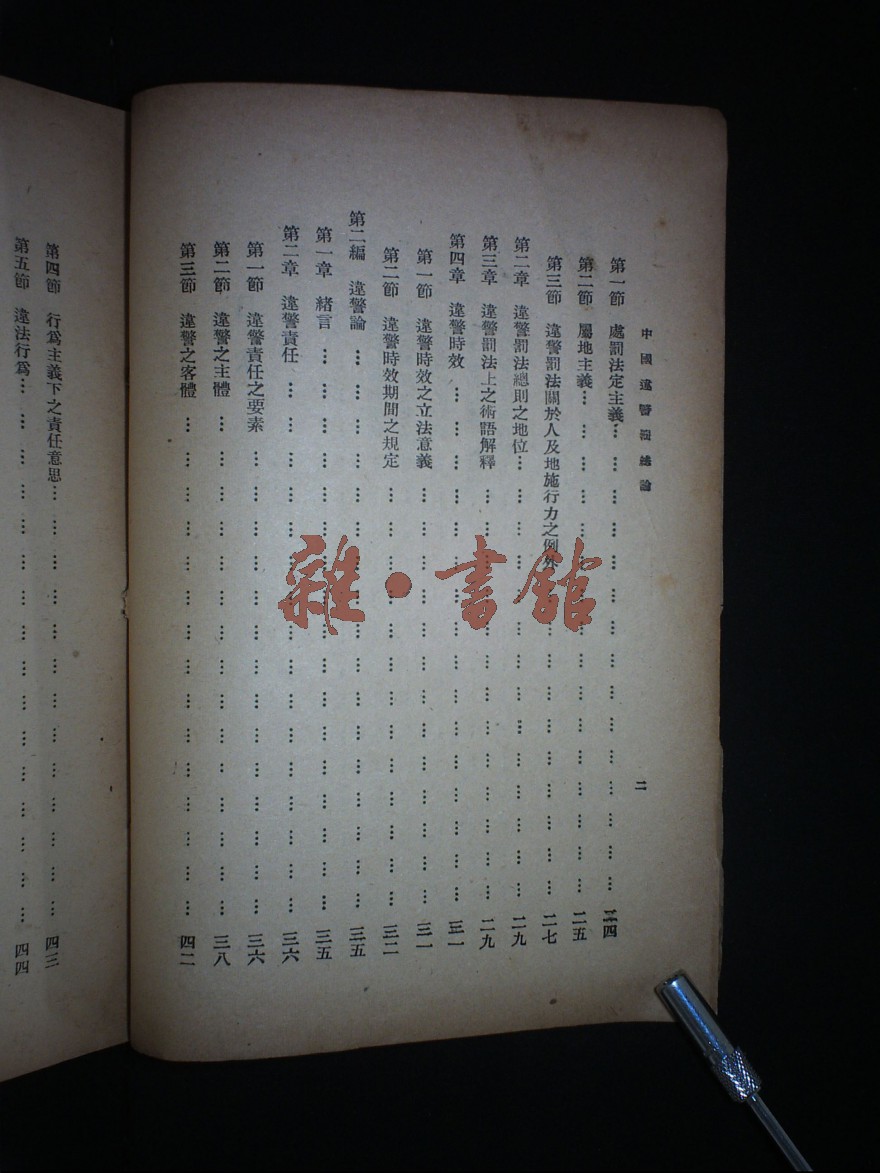 中國違警罰總論
二
第一節 處罰法定主義……………………………………二四
第二節 屬地主義……………………………………二五
第三節 違警罰法關於人及地施行力之例外……………………………………二七
第二章 違警罰法總則之地位……………………………………二九
第三章 違警罰法上之術語解釋……………………………………二九
第四章 違警時效……………………………………三一
第一節 違警時效之立法意義……………………………………三一
第二節 違警時效期間之規定……………………………………三二
第二編 違警論……………………………………三五
第一章 緒言……………………………………三五
第二章 違警責任……………………………………三六
第一節 違警責任之要素……………………………………三六
第二節 違警之主體……………………………………三八
第三節 違警之客體……………………………………四二
第四節 行爲主義下之責任意思……………………………………四三
第五節 違法行爲……………………………………四四
雜·書館